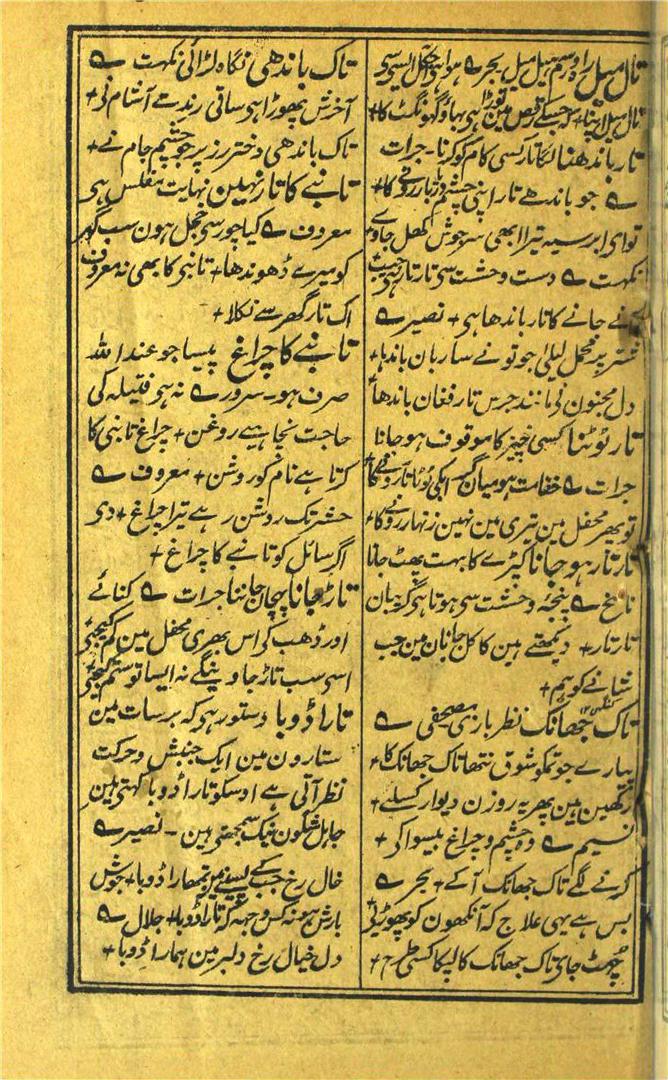 تال میل راہ و رسم میل بحر ے ہوا
تار باندھنا لگاتار کسی کام کو کرنا۔ جرات
ے جو باندھے تار اپنی چشم دریا بار رونے کا+
توای ابر سیہ تیرا ابھی سر جوش کھل جاوے
نکہت ے دست وحشت سی تار تار ہی جیب
جانے کا تار باندھا ہی+ نصیر ے
شتر پر محمل لیلیٰ جو تو نے ساربان باندھا+
دل مجنون نی مانند جرس تار فغان باندھا
تار ٹوٹنا کسی چیز کا موقوف ہو جانا
جرات ے خفامت ہو میان گر ابکی ٹوٹا تار رونے کا
تو پھر محفل مین تیری مین نہین زنہار رونے کا+
تار تار ہو جانا کپڑے کا بہت پھٹ جانا
ناسخ ے پنجۂ وحشت سی ہوتا ہی گریبان
تار تار+ دیکھتے ہین کاکل جانان مین جب
شانے کو ہم+
تاک جھانک نظر بازی مصحفی ے
پیارے جو تمکو شوق نتھا تاک جھانک کا+
رکھین ہین پھر یہ روزن دیوار کسلیے+
نسیم ے وہ چشم و چراغ بیسوا کی+
کرنے لگے تاک جھانک آکے+ بحر ے
بس ہے یہی علاج کہ آنکھون کو پھوڑئی
چھٹ جای تاک جھانک کا لپکا کسی طرح+
تاک باندھی نگاہ لڑائی نکہت ے
آخرش پھوڑا ہی ساقی رند مے آشام نی+
تاک باندھی دختر رز پر جو چشم جام نے+
تانبے کا تار نہین نہایت مفلس ہی
معروف ے کیا چور سی خجل ہون سب گھر
کو میرے ڈھونڈھا+ تانبی کا بھی نہ معروف
اک تار گھر سے نکلا+
تانبے کا چراغ پیسا جو عند اللہ
صرف ہو۔ سرور ے نہ ہی فتیلہ کی
حاجت نچاہیے روغن+ چراغ تانبی کا
کرتا ہے نام کو روشن+ معروف ے
حشر تک روشن رہے تیرا چراغ+ دی
اگر سائل کو تانبے کا چراغ+
تاڑ جانا پہچان جاننا جرات ے کنائے
اور ڈھب کی اس بھری محفل مین کم کیجیے
اسی سب تاڑ جاوینگے نہ ایسا تو ستم کیجی
تارا ڈوبا دستور ہی کہ برسات مین
ستارون مین ایک جنبش و حرکت
نظر آتی ہے اوسکو تارا ڈوبا کہتی ہین
جاہل شگون نیک سمجھتی ہین۔ نصیر ے
خال رخ جب کے پسینے مین تمھارا ڈوبا+ جوش
بارش ہو نہ کس وجہہ کہ تارا ڈوبا+ جلال ے
دل خیال رخ دلبر مین ہمارا ڈوبا+